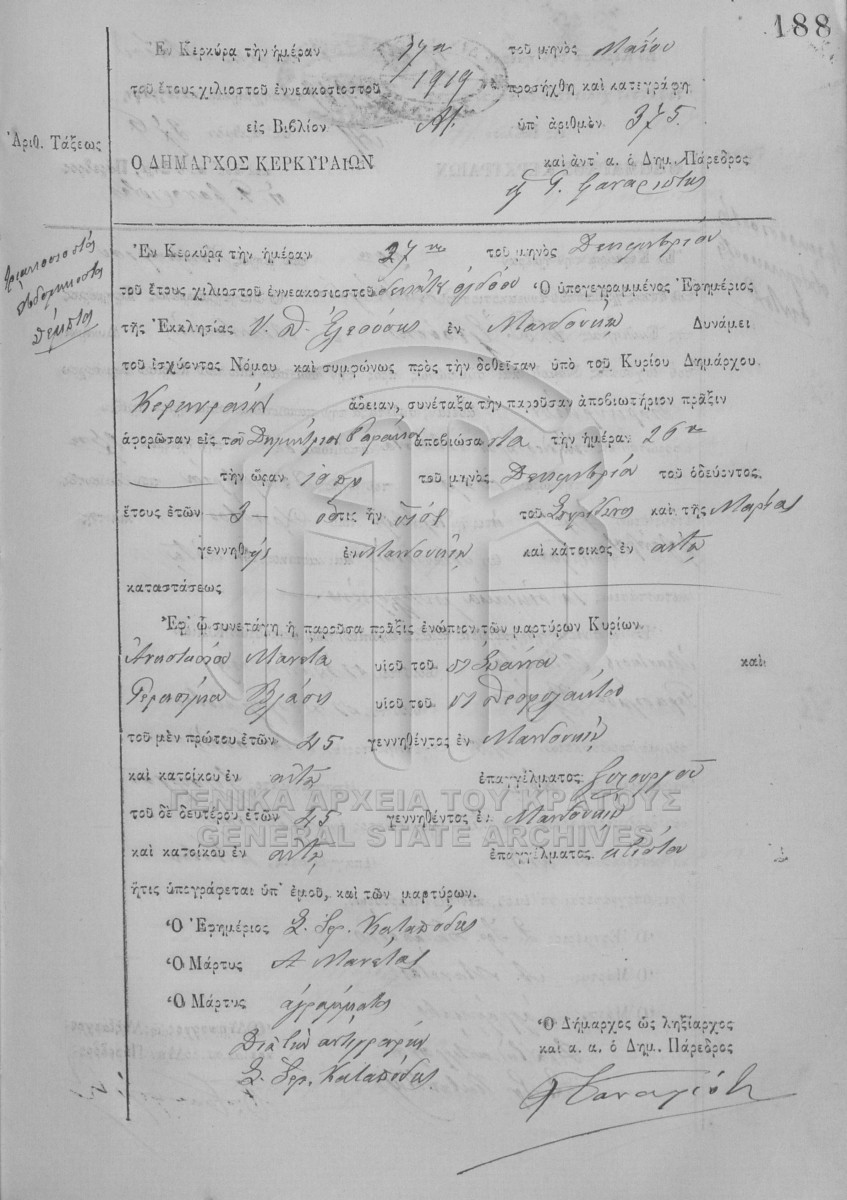 188
Ἐν Κερκύρᾳ τὴν ἡμέραν 17η τοῦ μηνὸς Μαΐου
τοῦ ἔτους χιλιοστοῦ ἐννεακοσιοστοῦ 1919 προσήχθη καὶ κατεγράφη
εἰς Βιβλίον Α/. ὑπ' ἀριθμὸν 375.
Ἀριθ. Τάξεως
Ο ΔΗΜΑΡΧΟΣ ΚΕΡΚΥΡΑΙΩΝ καὶ ἀντ' α. ὁ Δημ. Πάρεδρος
Τριακοσιοστὸς
ἑβδομηκοστὸς
πέμπτος
Ἐν Κερκύρᾳ τὴν ἡμέραν 27ην τοῦ μηνὸς Δεκεμβρίου
τοῦ ἔτους χιλιοστοῦ ἐννεακοσιοστοῦ δεκάτου ὀγδόου Ὁ ὑπογεγραμμένος Ἐφημέριος
τῆς Ἐκκλησίας Υ. Θ. Ἐλεούσης ἐν Μανδουκίῳ Δυνάμει
τοῦ ἰσχύοντος Νόμου καὶ συμφώνως πρὸς τὴν δοθεῖσαν ὑπὸ τοῦ Κυρίου Δημάρχου
Κερκυραίων ἄδειαν, συνέταξα τὴν παροῦσαν ἀποβιωτήριον πρᾶξιν
ἀφορῶσαν εἰς τὸν Δημήτριον ἀποβιώσαντα τὴν ἡμέραν 26ην
τὴν ὥραν 10 πμ τοῦ μηνὸς Δεκεμβρίου τοῦ ὁδεύοντος
ἔτους ἐτῶν 3 ὅστις ἦν υἱὸς τοῦ Σπυρίδωνος καὶ τῆς Μαρίας
γεννηθεὶς ἐν Μανδουκίῳ καὶ κάτοικος ἐν αὐτῷ
καταστάσεως
Ἐφ' ᾧ συνετάγη ἡ παροῦσα πρᾶξις ἐνώπιον τῶν μαρτύρων Κυρίων
Ἀναστασίου Μανέτα υἱοῦ τοῦ Ἰωάννου καὶ
Γερασίμου Βλάση υἱοῦ τοῦ Θεοφυλάκτου
τοῦ μὲν πρώτου ἐτῶν 45 γεννηθέντος ἐν Μανδουκίῳ
καὶ κατοίκου ἐν αὐτῷ ἐπαγγέλματος ξυλουργοῦ
τοῦ δὲ δευτέρου ἐτῶν 25 γεννηθέντος ἐν Μανδουκίῳ
καὶ κατοίκου ἐν αὐτῷ ἐπαγγέλματος κτίστου
ἥτις ὑπογράφεται ὑπ' ἐμοῦ, καὶ τῶν μαρτύρων.
Ὁ Ἐφημέριος Σ. Ἱερ. Καταπόδης
Ὁ Μάρτυς Α Μανέτας
Ὁ Μάρτυς ἀγράμματος
Διὰ τὴν ἀντιγραφὴν
Σ. Ἱερ. Καταπόδης
Ὁ Δήμαρχος ὡς ληξίαρχος
καὶ α. α. ὁ Δημ. Πάρεδρος
ΓΕΝΙΚΑ ΑΡΧΕΙΑ ΤΟΥ ΚΡΑΤΟΥΣ
GENERAL STATE ARCHIVES